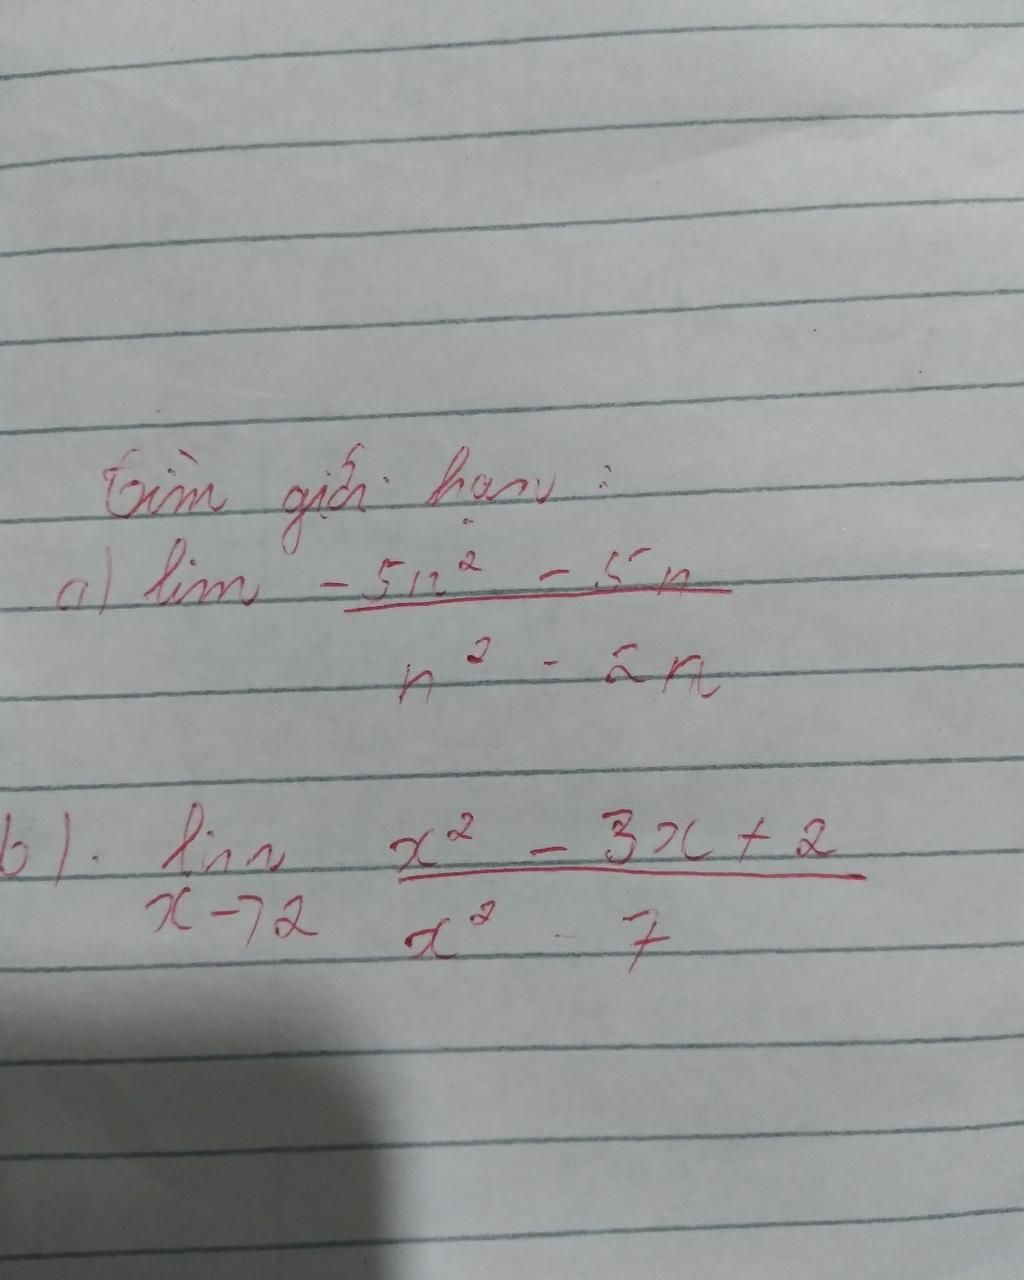 tìm giới hạn :
a) lim -5n² - 5n
n² - 2n
b). lim x² - 3x + 2
x→2 x² - 7